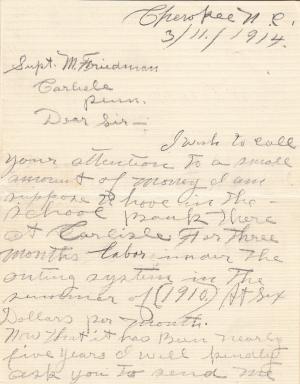 Cherokee N.C.
3/11/1914.
Supt. M. Friedman
Carlisle
Penn.
Dear Sir—
I wish to call
your attention to a small
amount of money I am
suppose to have in the -
school bank there
at Carlisle for three
months labor under the
outing system in the
summer of (1910) At Six
Dollars per month.
Now that it has been nearly
five years I will kindly
ask you to send me